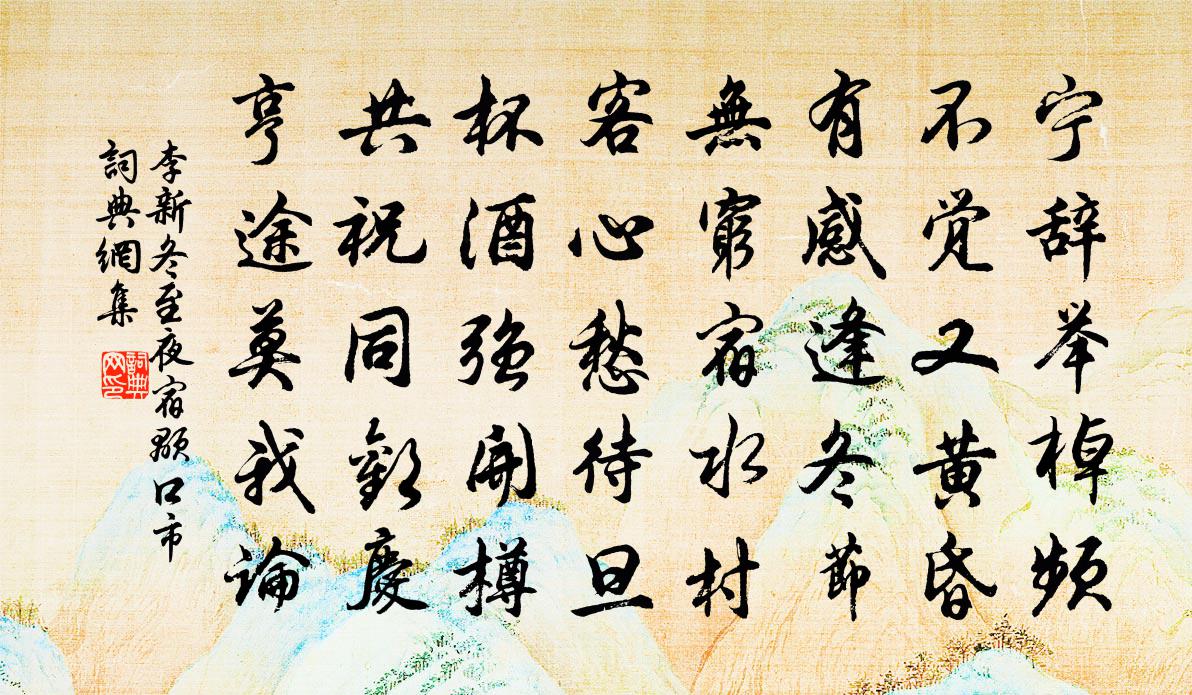 宁辞举棹频
不觉又黄昏
有感逢冬节
無窮宿水村
客心愁待旦
杯酒强開樽
共祝同歡慶
亨途莫我論
李新冬至夜宿颍口市
詞典網集
詞典网印